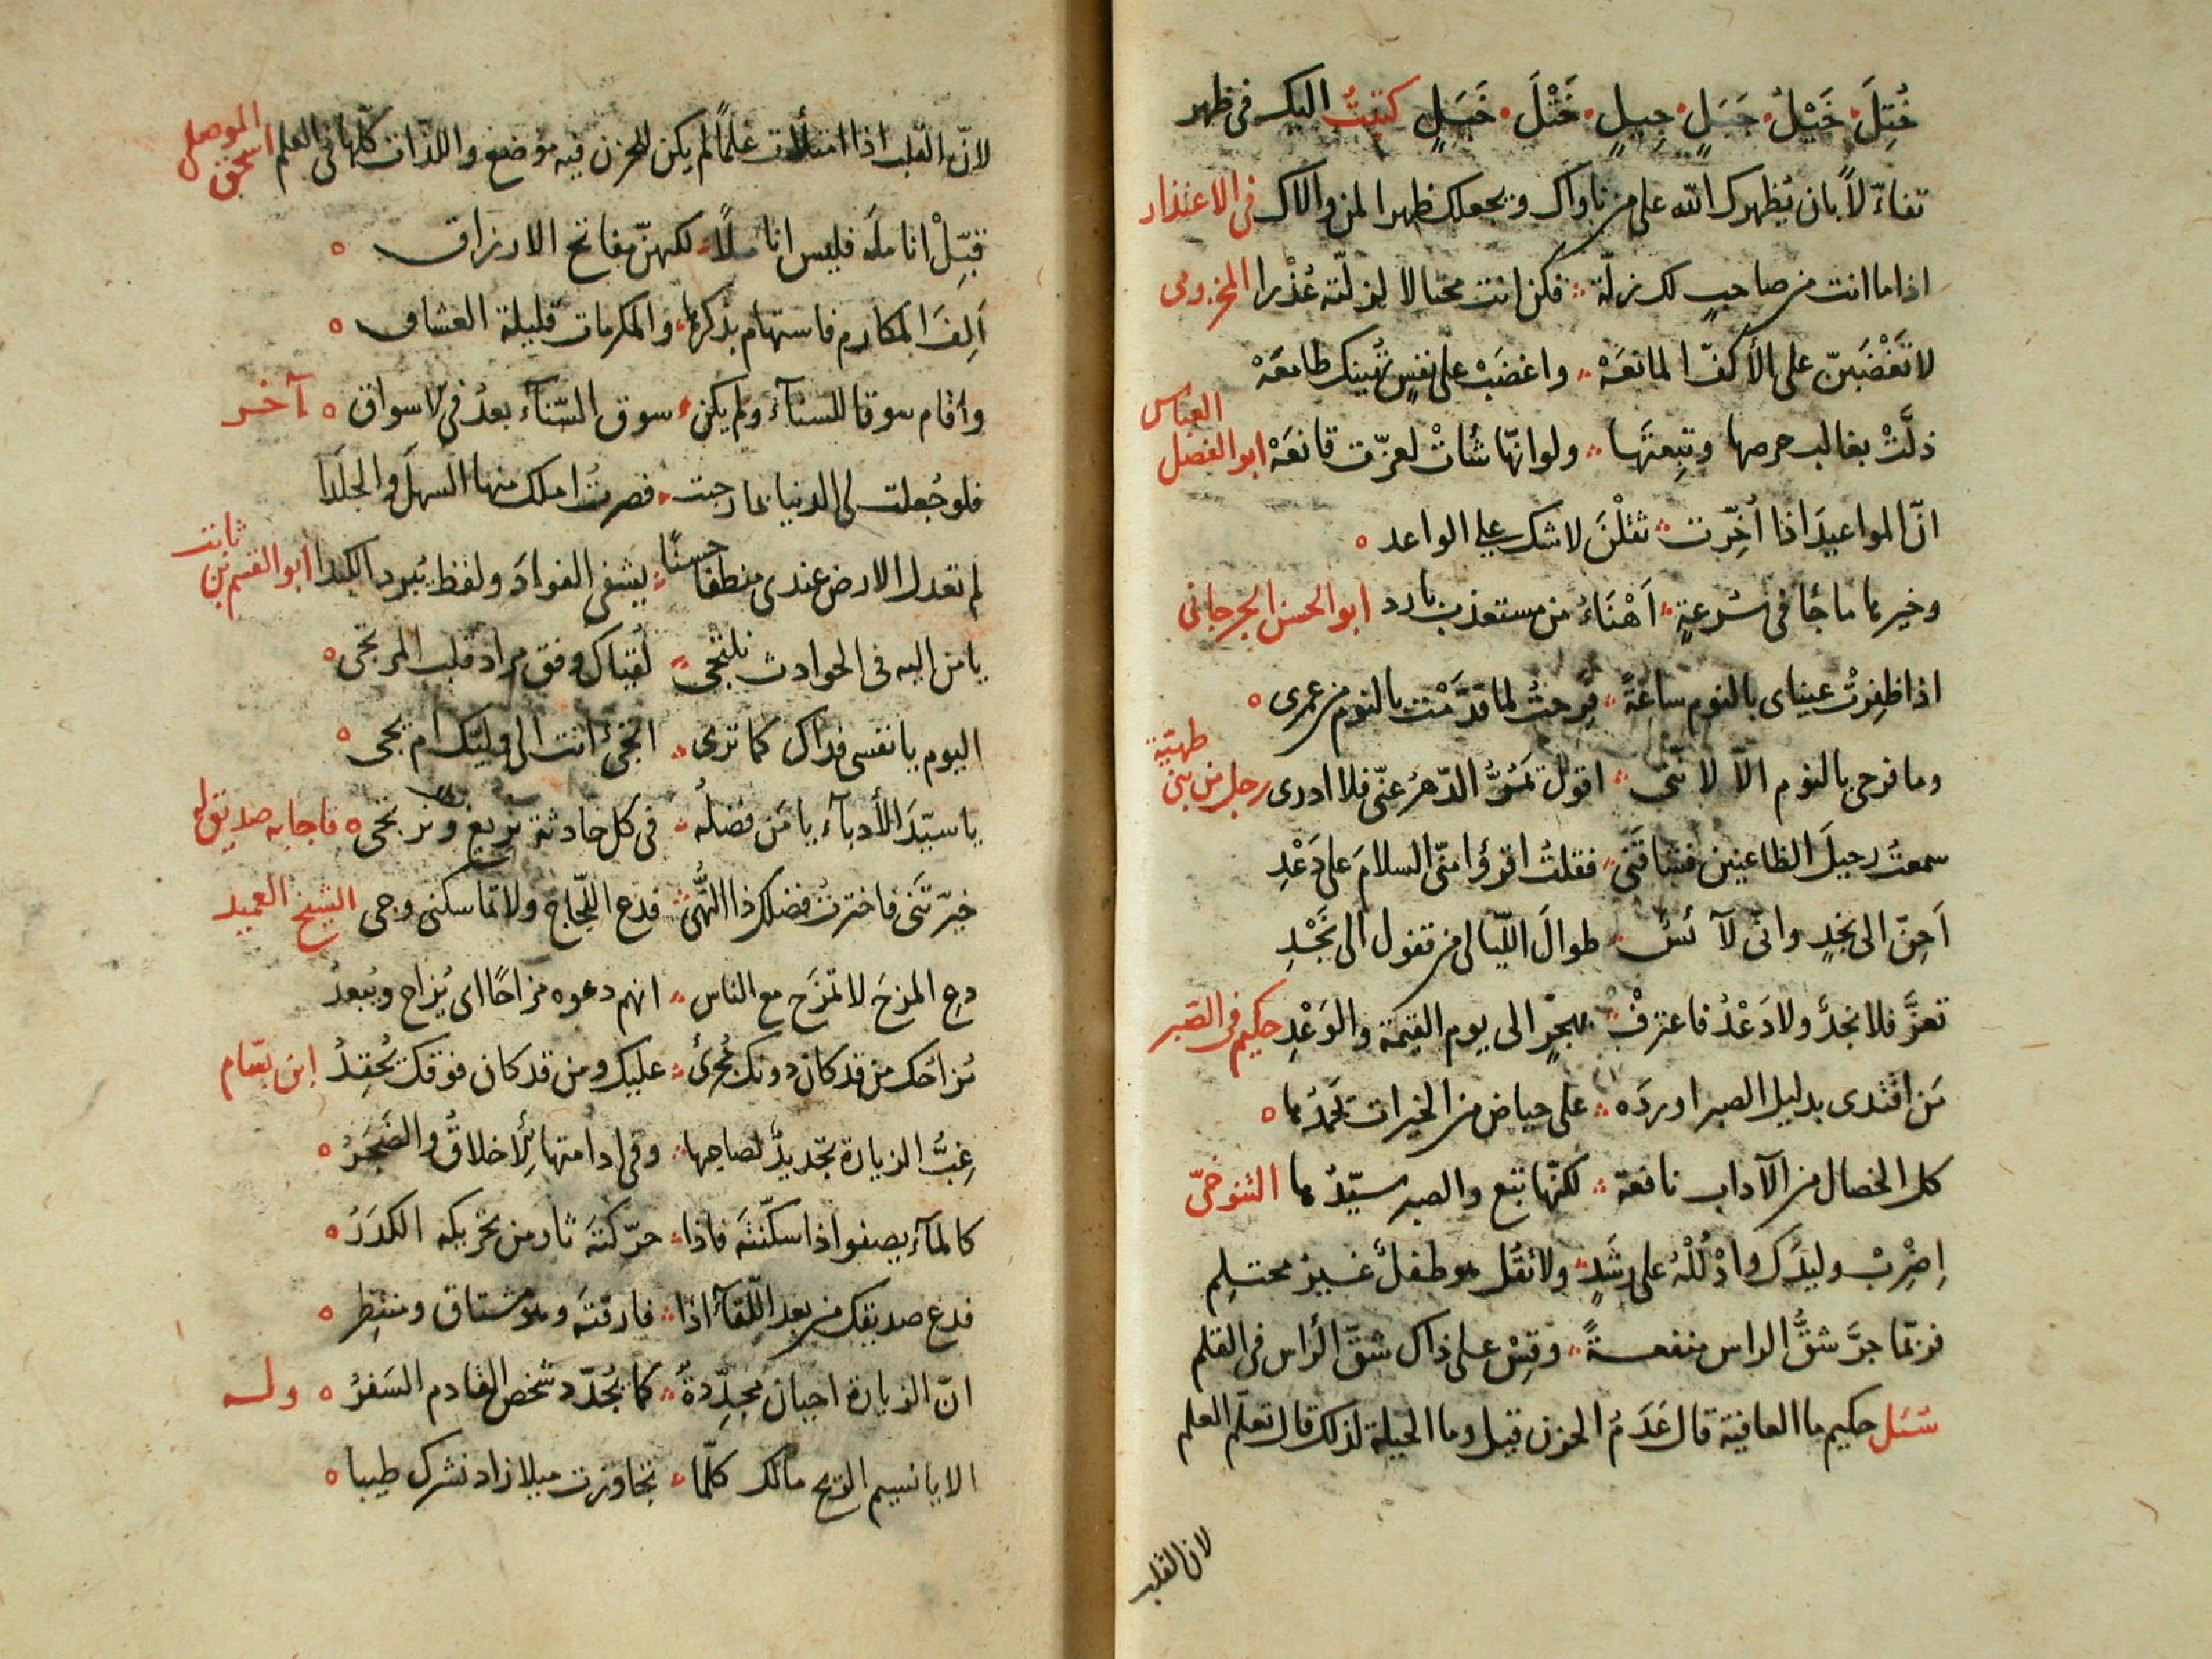 خُتِلَ خَيْلُ جَبَلٍ حِيلٍ خَتْلَ خَبَلٍ كتبتُ اليك في ظهر
تفاءّلاً بان يُظهرك الله على من ناواك ويجعلك ظهرا لمن والاك في الاعتذار
اذا ما اتت من صاحبٍ لك زلّة فكن انت محتالا لزلّته عُذْرا المخزومى
لا تَغْضَبَنّ على الأكفّ المانعَهْ واغضَبْ على نفسٍ تُهينك طامعَهْ
ذلَّتْ بغالب حرصها وتبِعتَها ولو انّها شاتْ لعزّت قانعَهْ ابو الفضل العباس
انّ المواعيدَ اذا أُخِّرت ثقلْنَ لا شك على الواعد
وخيرها ما جا في سُرعةٍ اَهْنَاءُ من مستعذب بارد ابو الحسن الجرجانى
اذا ظفِرتْ عيناى بالنوم ساعةً فرحتُ لما قدّمْت بالنوم من عمرى
وما فرحى بالنوم الّا لانّنى اقول تمرُّ الدّهرُ عنّى فلا ادرى رجل من بنى طهيّة
سمعتُ رحيلَ الظاعنين فشاقَنى فقلتُ اقرؤا منّى السلامَ على دَعْدِ
اَحِنّ الى نجدٍ وانى لآئسُ طوالَ اللّيالى من قفول الى نَجْدِ
تعزَّ فلا نجدُ ولا دَعْدُ فاعترفْ بهجرٍ الى يوم القيمة والوَعْدِ حكيم في الصّبر
مَن اقتدى بدليل الصبر اورَدَه على حياض من الخيرات يحمَدُها
كل الخصال من الآداب نافعة لكنّها تبَع والصبر سيّدُها التنوخىّ
اِضْرِبْ وليدَك وادْلُلْهُ على رشَدٍ ولا تقُل هو طفلٌ غيرُ محتلِم
فربّما جرَّ شقُّ الراس منفعةً وقِسْ على ذاك شقّ الرّاس في القلم
سُئل حكيم ما العافية قال عَدَمُ الحزن قيل وما الحيلة لذلك قال تعلّم العلم
لان القلب
لانّ القلب اذا امتلأت علمًا لم يكن للحزن فيه موضع واللذّات كلّها في العلم اسحق الموصلى
قبِّلْ اناملَه فليس اناملاً لكنهنّ مفاتح الارزاق
اَلِفَ المكارم فاستهام بذكرها والمكرمات قليلة العشاق
واقام سوقا للسنآء ولم يكن سوق السّنآء بعدُ في الاسواق آخر
فلو جُعلت لى الدنيا بما رحبت فصرتُ املك منها السهلَ والجلَدا
لم تعدل الارض عندى منطقا حسنًا يشفى الفوادَ ولفظ يُبرد الكبدا ابو القسم بن ثابت
يا من اليه في الحوادث نلتجى لُقياك وفق مراد قلب المرتجى
اليوم يا نفسى فداك كما ترى اتجىُ انت الى وليّك ام يجى
يا سيّدَ الأدبآء يا مَن فضلُه في كل حادثة نريغ ونرتجى فاجابه صديق له
خيّرتَنى فاخترتُ فضلك ذا النُّهى فدع اللّجاج ولا تماسكنى وجى الشيخ العميد
دع المزحَ لا تمزَح مع الناس انهم دعوه مزاحًا اى يُزاح ويُبعدُ
مُزاحَك من قد كان دونك يُجرئُ عليك ومن قد كان فوقك يُحقِدُ ابن بسّام
غِبُّ الزيارة تجديدٌ لصاحبها وفى ادامتها يُلأخلاقُ والضَجَرُ
كالمآء يصفوا اذا سكّنتَه فاذا حرّكتَه ثار من تحريكه الكدَرُ
فدع صديقك من بعد اللّقآء اذا فارقتَه وهو مشتاق ومنتظِر
انّ الزيارة احيان مجدِّدةُ كما يُجدّد شخص القادم السَفرُ وله
الا يا نسيم الريح مالك كلّما تجاوزت ميلا زاد نشرك طيبا